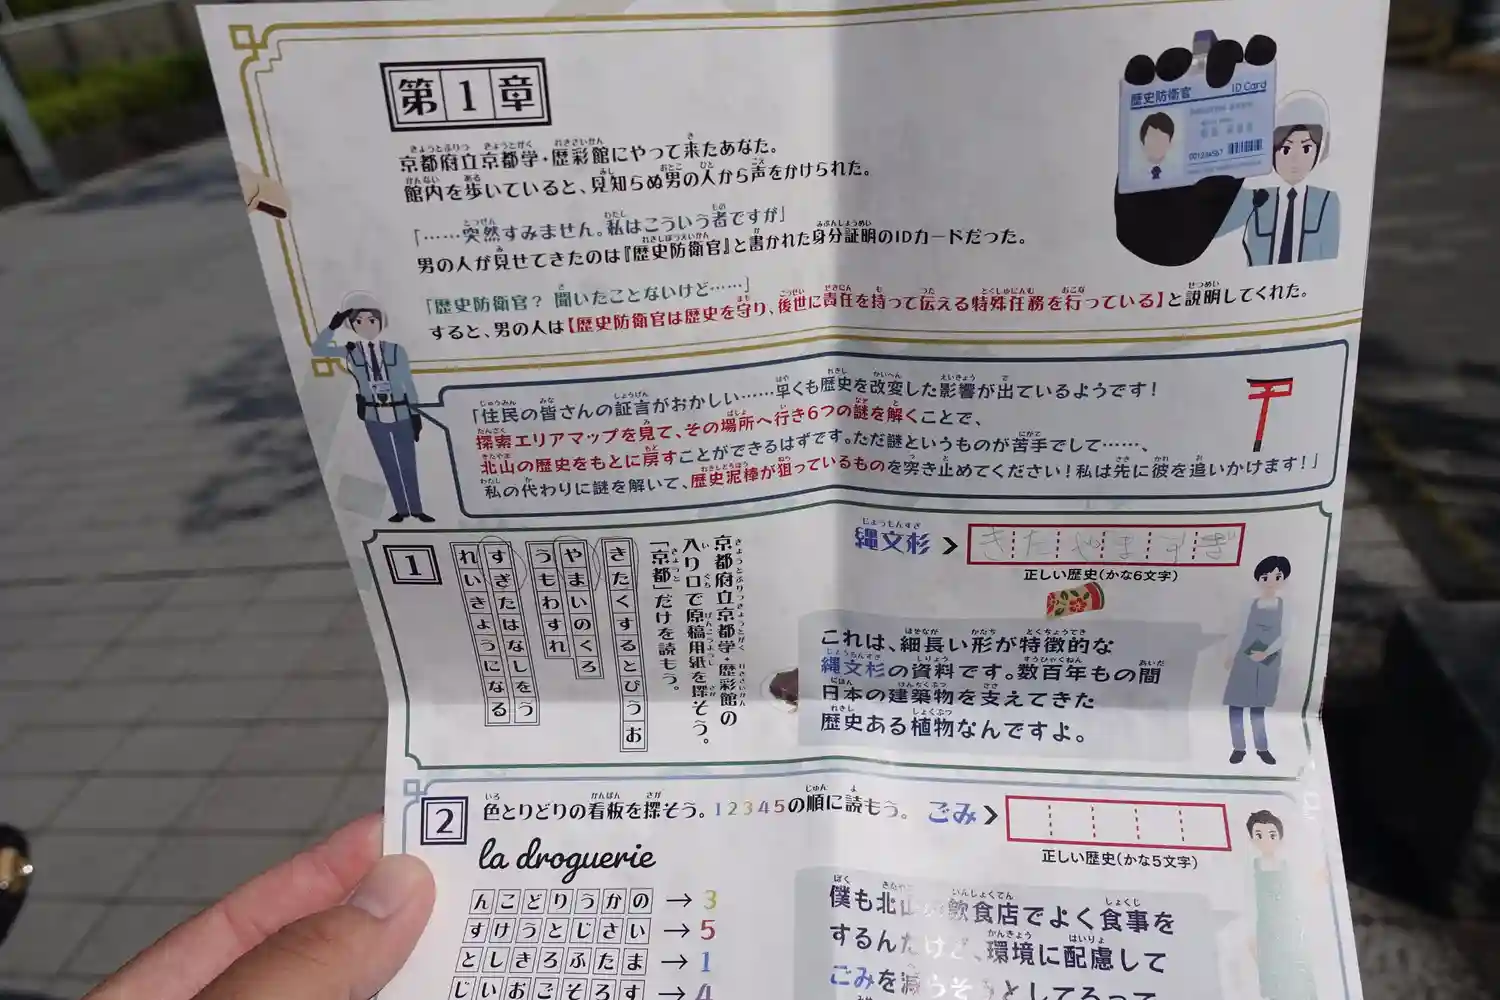 第1章
京都府立京都学・歴彩館にやって来たあなた。
館内を歩いていると、見知らぬ男の人から声をかけられた。
「……突然すみません。私はこういう者ですが」
男の人が見せてきたのは『歴史防衛官』と書かれた身分証明のIDカードだった。
「歴史防衛官? 聞いたことないけど……」
すると、男の人は【歴史防衛官は歴史を守り、後世に責任を持って伝える特殊任務を行っている】と説明してくれた。
歴史防衛官
ID Card
001234567
「住民の皆さんの証言がおかしい……早くも歴史を改変した影響が出ているようです!
探索エリアマップを見て、その場所へ行き6つの謎を解くことで、
北山の歴史をもとに戻すことができるはずです。ただ謎というものが苦手でして……、
私の代わりに謎を解いて、歴史泥棒が狙っているものを突き止めてください!私は先に彼を追いかけます!」
1
京都府立京都学・歴彩館の
入り口で原稿用紙を探そう。
「京都」だけを読もう。
きたくするとびうお
やまいのくろ
うもわすれ
すぎたはなしをう
れいきょうになる
縄文杉
きたやますぎ
正しい歴史(かな6文字)
これは、細長い形が特徴的な
縄文杉の資料です。数百年もの間
日本の建築物を支えてきた
歴史ある植物なんですよ。
2
色とりどりの看板を探そう。12345の順に読もう。
la droguerie
んこどりうかの→3
すけうとじさい→5
としきろふたま→1
じいおごそろす→4
ごみ
正しい歴史(かな5文字)
僕も北山の飲食店でよく食事を
するんだけど、環境に配慮して
ごみを減らそうとしてるって